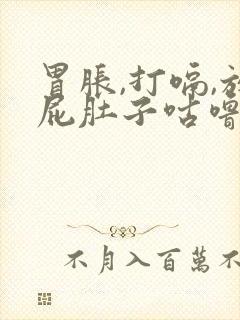 胃脹,打嗝,放
屁肚子咕嚕
不月入百萬不